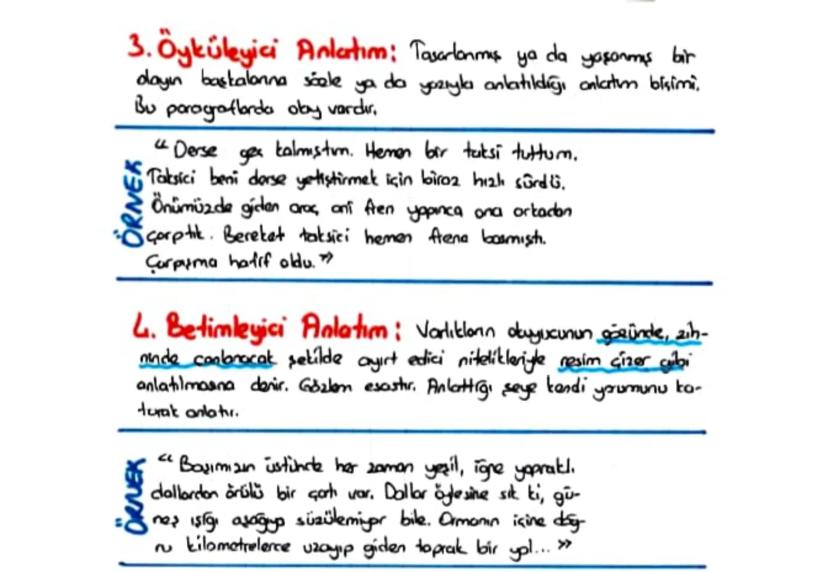 3. Öyküleyici Anlatım: Tasarlanmış ya da yaşanmış bir
olayın başkalarına sözle ya da yazıyla anlatıldığı anlatım biçimi.
Bu paragraflarda olay vardır.
ÖRNEK
“Derse geç kalmıştım. Hemen bir taksi tuttum.
Taksici beni derse yetiştirmek için biraz hızlı sürdü.
Önümüzde giden araç ani fren yapınca ona arkadan
çarptık. Bereket taksici hemen frena basmıştı.
Çarpışma hafif oldu.”
4. Betimleyici Anlatım: Varlıkların okuyucunun gözünde, zih-
ninde canlanacak şekilde ayırt edici nitelikleriyle resim çizer gibi
anlatılmasına denir. Gözlem esastır. Anlattığı şeye kendi yorumunu ka-
tarak anlatır.
ÖRNEK
“Başımızın üstünde her zaman yeşil, iğne yapraklı
dallardan örülü bir çatı var. Dallar öylesine sık ki, gü-
neş ışığı aşağıya süzülemiyor bile. Ormanın içine doğ-
ru kilometrelerce uzayıp giden toprak bir yol...”